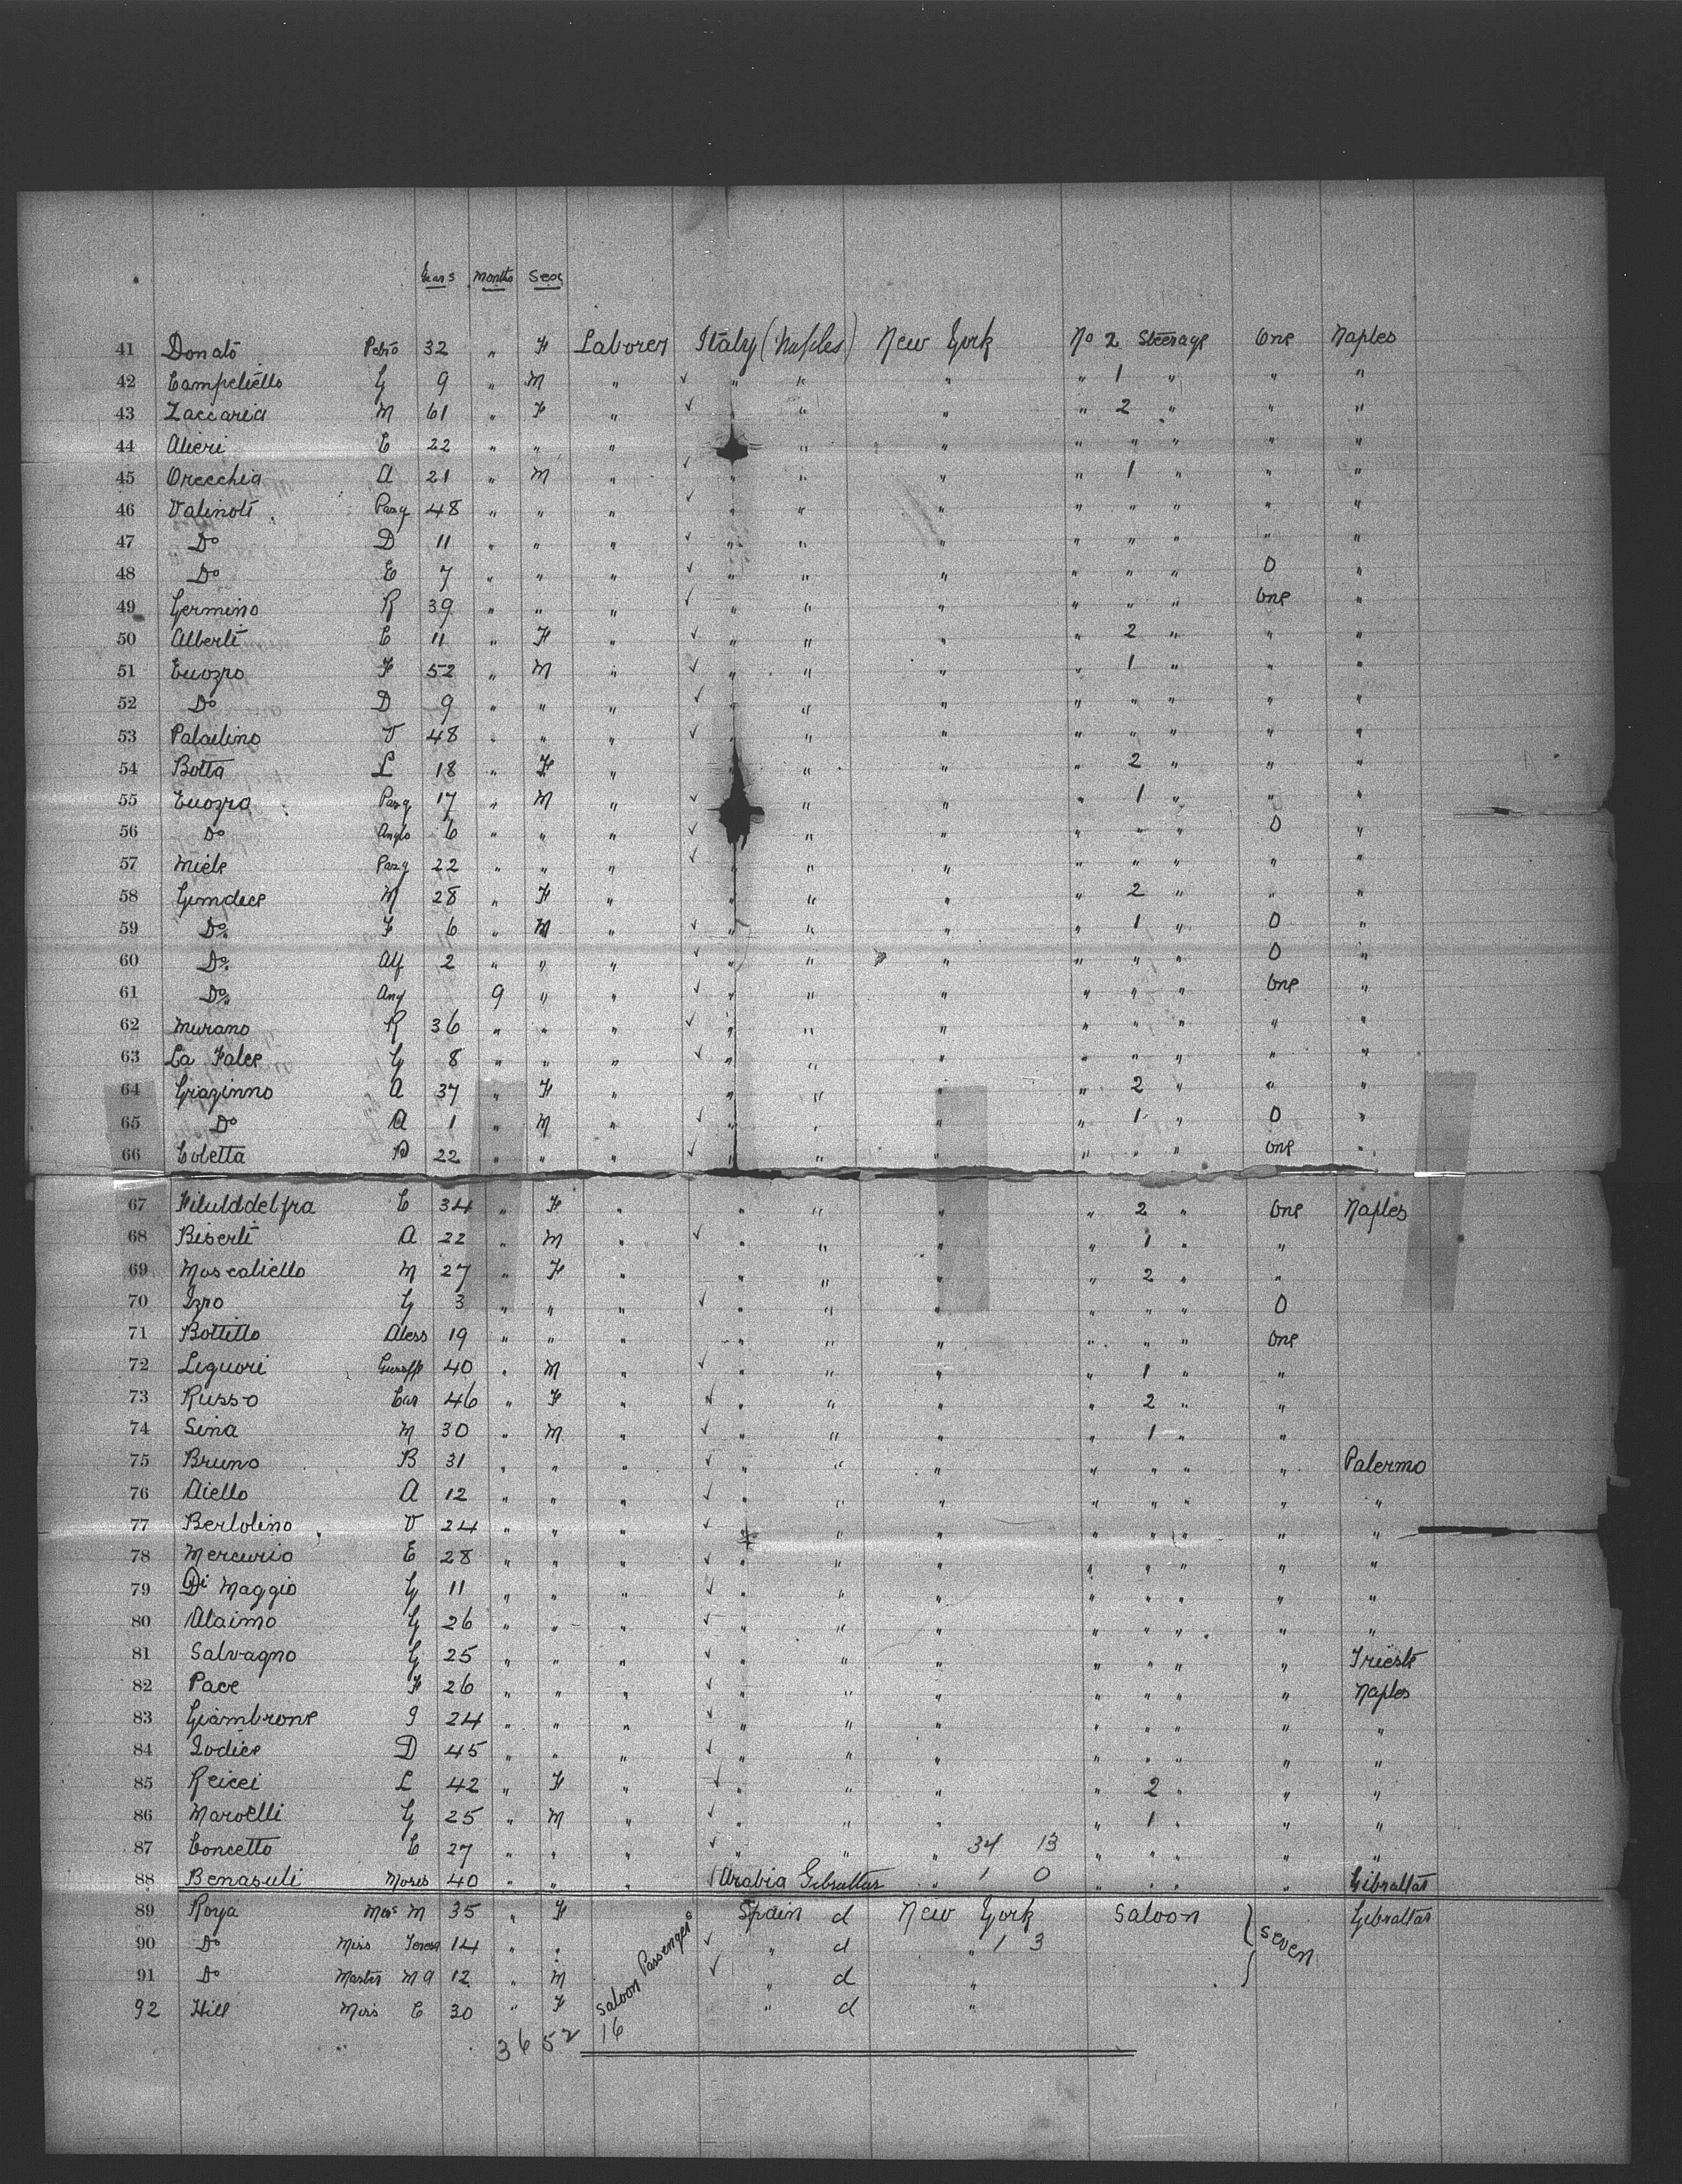 Years Months Sex
41 Donato Petro 32 " F Laborer Italy (Naples) New York No 2 Steerage One Naples
42 Campeliello G 9 " M " " " " " 1 " " "
43 Zaccaria M 61 " F " " " " " 2 " " "
44 Alieri E 22 " " " " " " " " " "
45 Orecchia A 21 " M " " " " " 1 " " "
46 Valinoti Pasq 48 " " " " " " " " " " "
47 Do D 11 " " " " " " " " " " "
48 Do E 7 " " " " " " " " " 0 "
49 Germino R 39 " " " " " " " " " One "
50 Alberti E 11 " F " " " " " 2 " " "
51 Cuozzo F 52 " M " " " " " 1 " " "
52 Do D 9 " " " " " " " " " " "
53 Paladino V 48 " " " " " " " " " " "
54 Botta L 18 " F " " " " " 2 " " "
55 Cuozzo Pasq 17 " M " " " " 1 " " "
56 Do Anglo 6 " " " " " " " " " 0 "
57 Miele Pasq 22 " " " " " " " " " " "
58 M 28 " F " " " " " 2 " " "
59 Do F 6 " M " " " " " 1 " 0 "
60 Do Alf 2 " " " " " " " " " 0 "
61 Do Ang 9 " " " " " " " " One "
62 Murano R 36 " " " " " " " " " " "
63 La Falce G 8 " " " " " " " " " " "
64 Grazinno A 37 " F " " " " " 2 " " "
65 Do A 1 " M " " " " " 1 " 0 "
66 Coletta 22 " " " " " " " " " One "
67 E 34 " F " " " " " 2 " One Naples
68 Biserti A 22 " M " " " " " 1 " "
69 Moscatiello M 27 " F " " " " " 2 " "
70 Izzo G 3 " " " " " " " " " 0
71 Bottillo Aless 19 " " " " " " " " " One
72 Liguori 40 " M " " " " " 1 " "
73 Russo Car 46 " F " " " " " 2 " "
74 Sina M 30 " M " " " " " 1 " "
75 Bruno B 31 " " " " " " " " " " Palermo
76 Aiello A 12 " " " " " " " " " " "
77 Bertolino V 24 " " " " " " " " " " "
78 Mercurio E 28 " " " " " " " " " " "
79 Di Maggio G 11 " " " " " " " " " " "
80 Alaimo G 26 " " " " " " " " " " "
81 Salvagno G 25 " " " " " " " " " " Trieste
82 Pace F 26 " " " " " " " " " " Naples
83 Giambrone I 24 " " " " " " " " " " "
84 Iodice D 45 " " " " " " " " " " "
85 Reicci L 42 " F " " " " " 2 " " "
86 Maroelli G 25 " M " " " " " 1 " " "
87 Concetto C 27 " " " " " " 34 13 " " " " "
88 Benasuli Moses 40 " " " Arabia Gibraltar " 1 0 " " " " Gibraltar
89 Roya Mrs M 35 " F Spain d New York Saloon Gibraltar
90 Do Miss Teresa 14 " " " d " 1 3 seven
91 Do Master M A 12 " M " d "
92 Hill Miss E 30 " F Saloon Passengers " d "
36 52 16